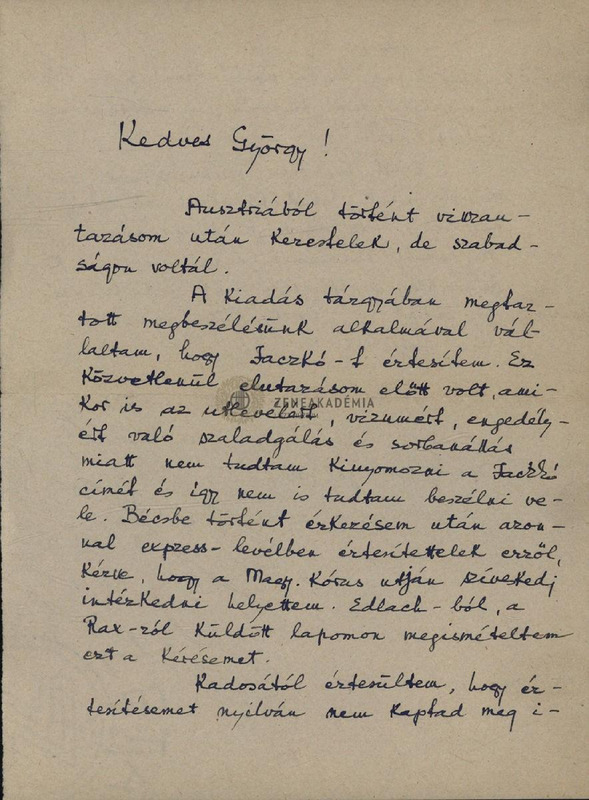 Kedves György!
Ausztriából történt visszau-
tazásom után kerestelek, de szabad-
ságon voltál.
A kiadás tárgyában megtar-
tott megbeszélésünk alkalmával vál-
laltam, hogy Jaczkó-t értesítem. Ez
közvetlenül elutazásom előtt volt, ami-
kor is az utlevélért, vizumért, engedély-
ért való szaladgálás és sorbanállás
miatt nem tudtam kinyomozni a Jaczkó
címét és igy nem is tudtam beszélni ve-
le. Bécsbe történt érkezésem után azon-
nal express-levélben értesítettelek erről,
kérve, hogy a Magy. Kórus utján szíveskedj
intézkedni helyettem. Edlach-ból, a
Rax-ról küldött lapomon megismételtem
ezt a kérésemet.
Kadosától értesültem, hogy ér-
tesítésemet nyilván nem kaptad meg i-
ZENEAKADÉMIA